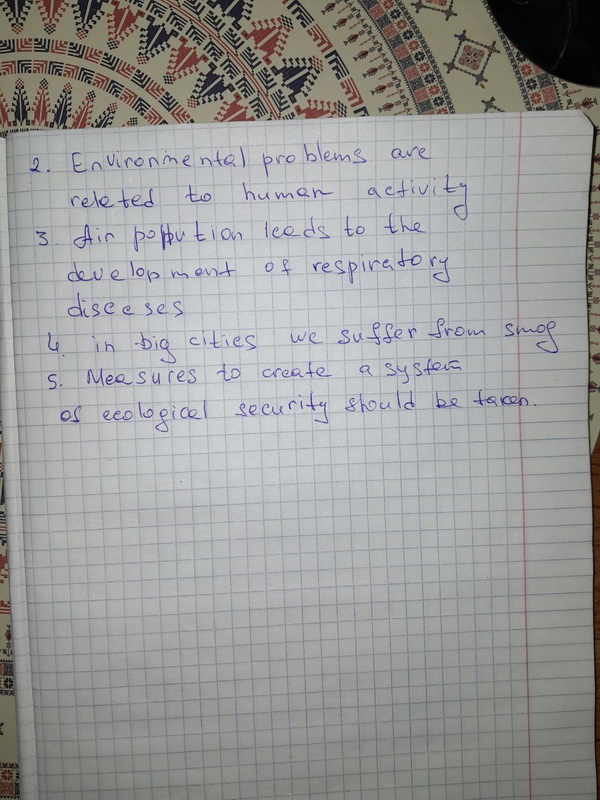 2. Environmental problems are
releted to human activity
3. Air pollution leeds to the
development of respiratory
diseeses
4. in big cities we suffer from smog
5. Measures to create a system
of ecological security should be taken.